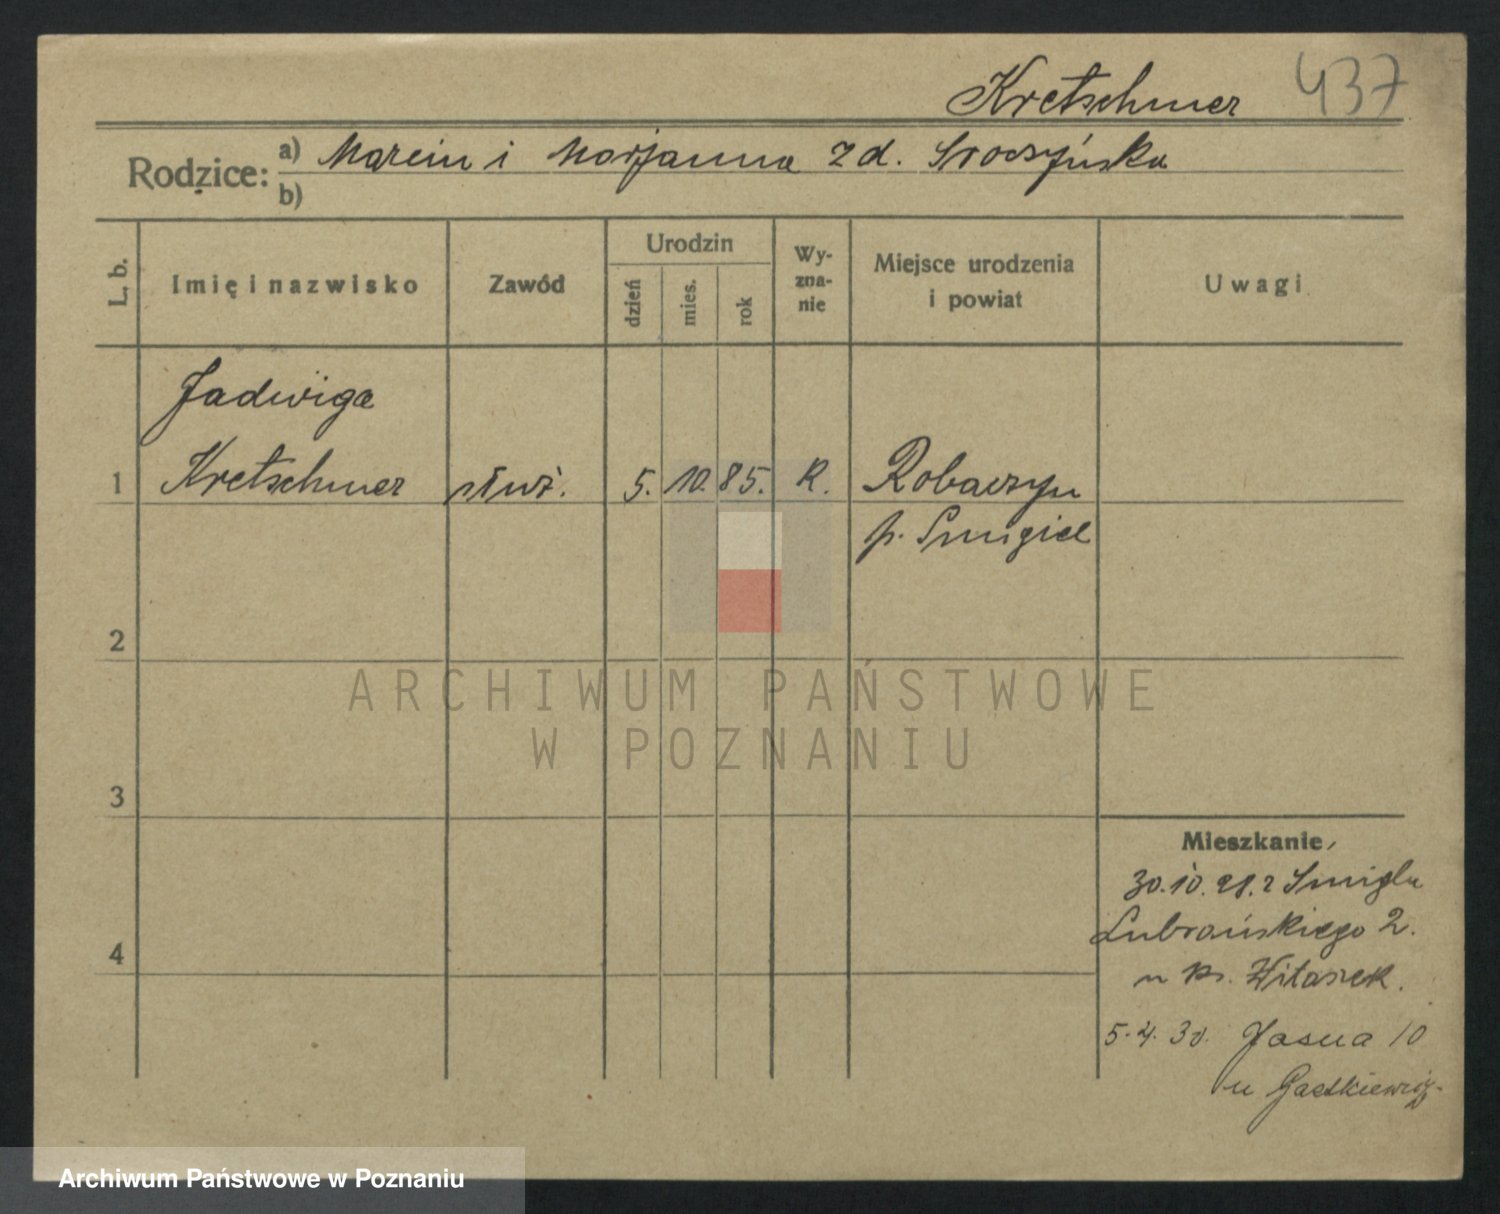 Kretschmer 437
Rodzice: a) Marcin i Marjanna z d. Sroczyńska
b)
L. b. Imię i nazwisko Zawód Urodzin dzień mies. rok Wyznanie Miejsce urodzenia i powiat Uwagi
Jadwiga
1 Kretschmer służ. 5. 10. 85. R. Robaczyn
p. Śmigiel
2
ARCHIWUM PAŃSTWOWE
W POZNANIU
3
Mieszkanie
30.10.28. z Śmigla
Lubrańskiego 2.
u ks. Witaszek.
5.4.30. Jasna 10
u
Archiwum Państwowe w Poznaniu